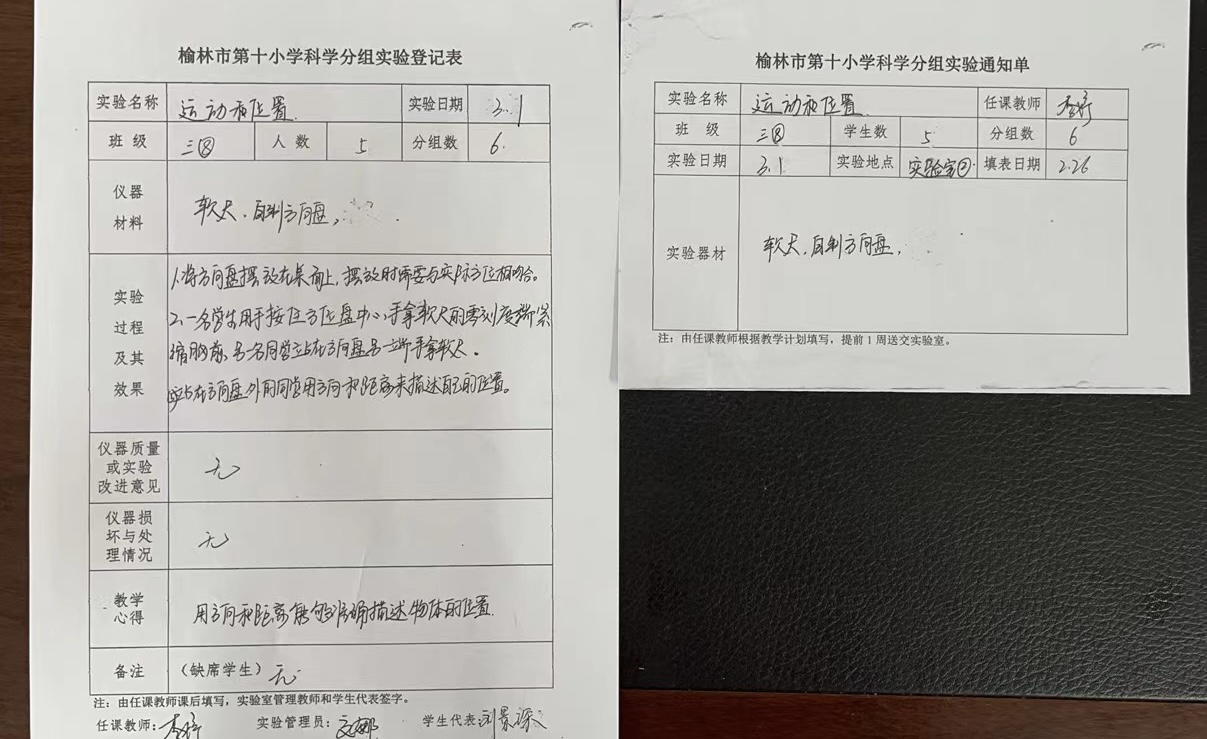 榆林市第十小学科学分组实验登记表
实验名称 运动和位置 实验日期 3.1
班 级 三⑧ 人 数 5 分组数 6.
仪器
材料
软尺、自制方向盘,
实验
过程
及其
效果
1、将方向盘摆放在桌面上,摆放时需要与实际方位相吻合。
2、一名学生用手按住方位盘中心,手拿软尺的零刻度端
胸前,另一名同学站在方向盘另一端手拿软尺。
站在方向盘外的同学用方向和距离来描述自己的位置。
仪器质量
或实验
改进意见
无
仪器损
坏与处
理情况
无
教学
心得
用方向和距离能够准确描述物体的位置.
备注 (缺席学生) 无
注:由任课教师课后填写,实验室管理教师和学生代表签字。
任课教师: 李 实验管理员: 娜 学生代表 刘景深
榆林市第十小学科学分组实验通知单
实验名称 运动和位置 任课教师 李
班 级 三⑧ 学生数 5 分组数 6
实验日期 3.1 实验地点 实验室② 填表日期 2.26
实验器材 软尺、自制方向盘,
注:由任课教师根据教学计划填写,提前1周送交实验室。